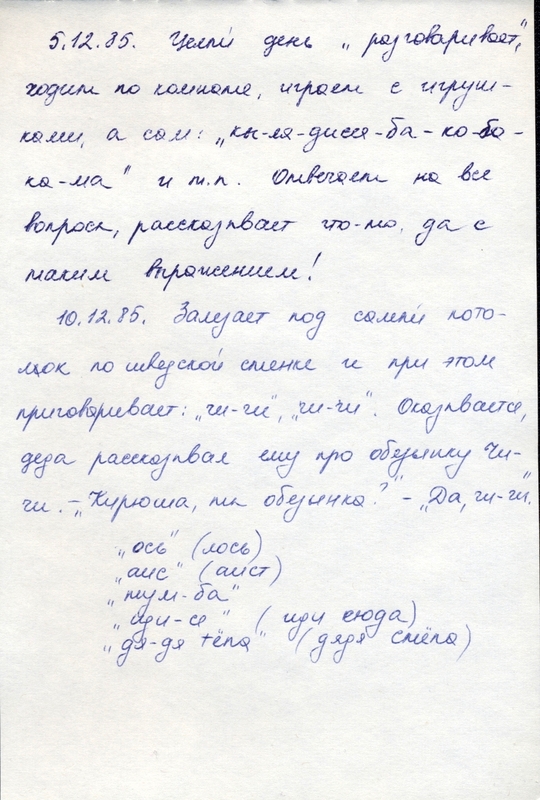 5.12.85. Целый день „разговаривает",
ходит по комнате, играет с игруш-
ками, а сам: „кы-ля-дися-ба-ко-ба-
ка-ма" и т.п. Отвечает на все
вопросы, рассказывает что-то, да с
таким выражением!
10.12.85. Залезает под самый пото-
лок по шведской стенке и при этом
приговаривает: „чи-чи", „чи-чи". Оказывается,
деда рассказывал ему про обезьянку Чи-
чи. – „Кирюша, ты обезьянка?" – „Да, чи-чи".
„ось" (лось)
„аис" (аист)
„тум-ба"
„иди-се" (иди сюда)
„дя-дя тёпа" (дядя стёпа)